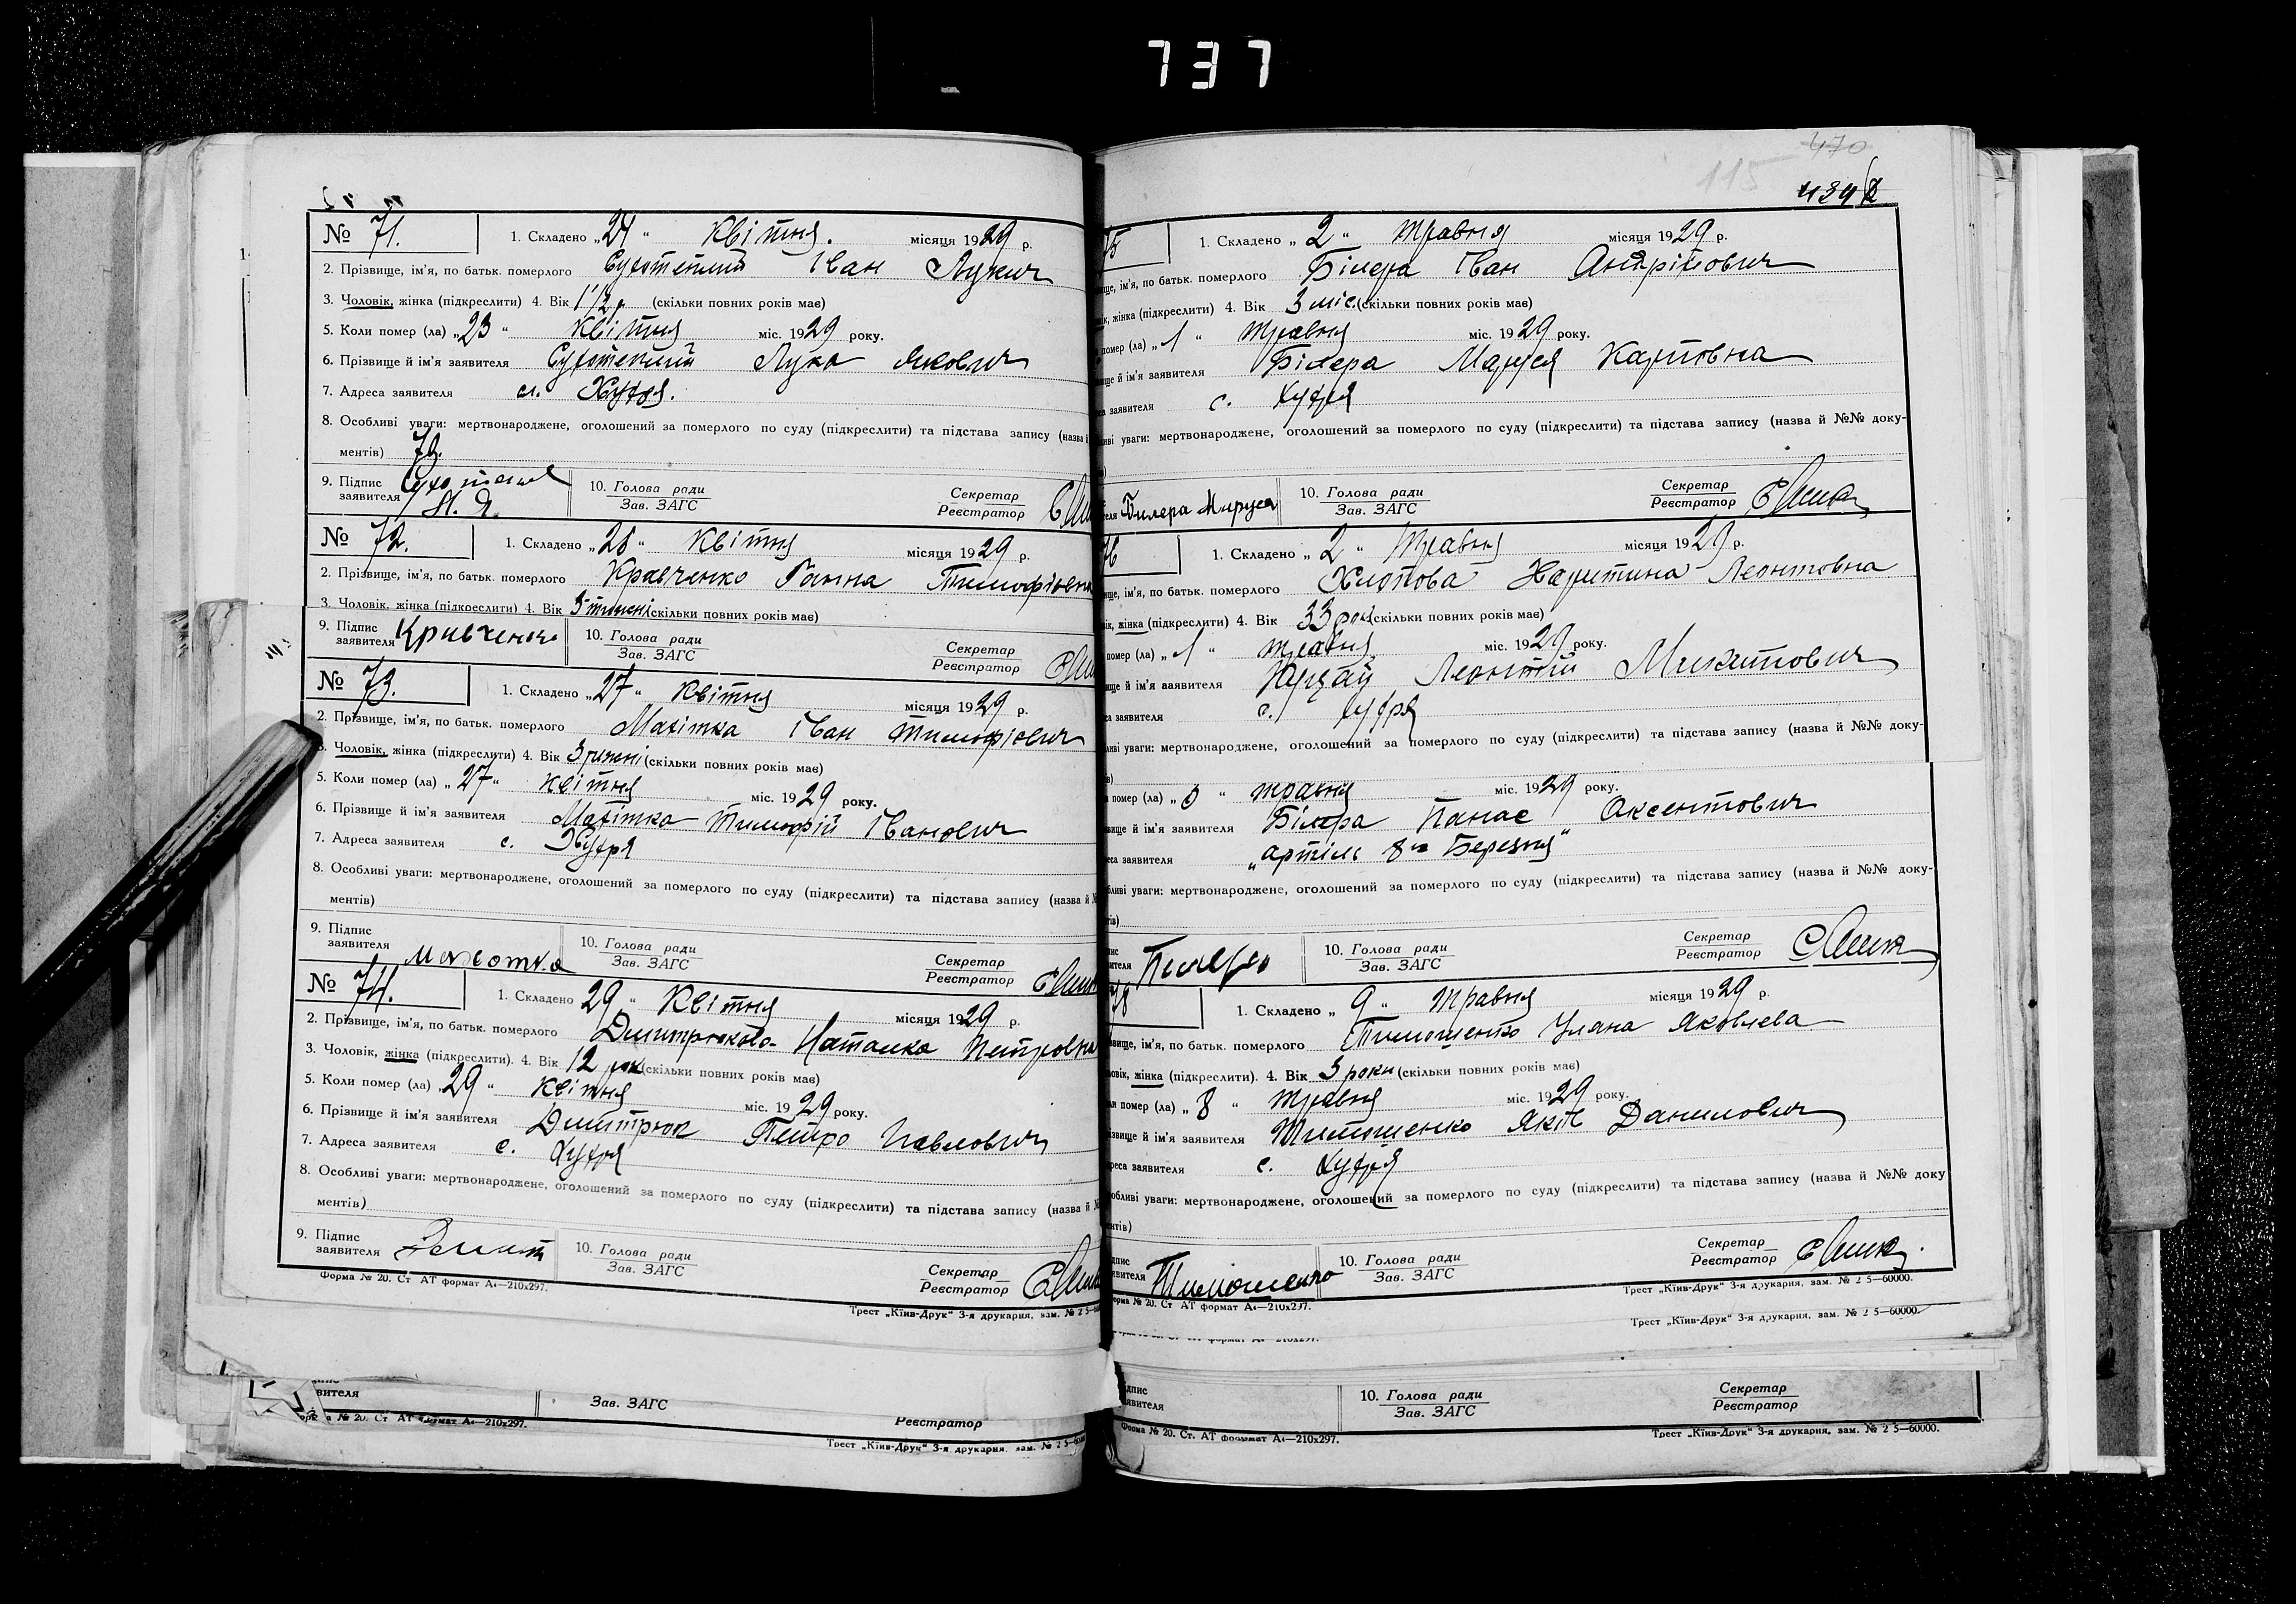 737
№ 71.
1. Складено „24“ Квітня. місяця 1929 р.
2. Прізвище, ім'я, по батьк. померлого Сухотеплий Іван Лукич
3. Чоловік, жінка (підкреслити) 4. Вік 1 1/2 р. (скільки повних років має)
5. Коли помер (ла) „23“ Квітня міс. 1929 року.
6. Прізвище й ім'я заявителя Сухотеплий Лука Якович
7. Адреса заявителя с. Хутря.
8. Особливі уваги: мертвонароджене, оголошений за померлого по суду (підкреслити) та підстава запису (назва й
ментів)
9. Підпис заявителя
10. Голова ради
Зав. ЗАГС
Секретар
Реєстратор
№ 72.
1. Складено „26“ Квітня місяця 1929 р.
2. Прізвище, ім'я, по батьк. померлого Кравченко Ганна Тимофіївна
3. Чоловік, жінка (підкреслити) 4. Вік 3 тижні (скільки повних років має)
9. Підпис заявителя Кравченко
10. Голова ради
Зав. ЗАГС
Секретар
Реєстратор
№ 73.
1. Складено „27“ Квітня місяця 1929 р.
2. Прізвище, ім'я, по батьк. померлого Махітка Іван Тимофієвич
3. Чоловік, жінка (підкреслити) 4. Вік 3 тижні (скільки повних років має)
5. Коли помер (ла) „27“ Квітня міс. 1929 року.
6. Прізвище й ім'я заявителя Махітка Тимофій Іванович
7. Адреса заявителя с. Хутря
8. Особливі уваги: мертвонароджене, оголошений за померлого по суду (підкреслити) та підстава запису (назва й №
ментів)
9. Підпис заявителя Махотка
10. Голова ради
Зав. ЗАГС
Секретар
Реєстратор
№ 74.
1. Складено 29“ Квітня місяця 1929 р.
2. Прізвище, ім'я, по батьк. померлого Дмитрюкова Наталка Петровна
3. Чоловік, жінка (підкреслити). 4. Вік 12 рок (скільки повних років має)
5. Коли помер (ла) 29“ Квітня міс. 1929 року.
6. Прізвище й ім'я заявителя Дмитрюк Петро Павлович
7. Адреса заявителя с. Хутря
8. Особливі уваги: мертвонароджене, оголошений за померлого по суду (підкреслити) та підстава запису (назва й №
ментів)
9. Підпис заявителя
10. Голова ради
Зав. ЗАГС
Секретар
Реєстратор
Форма № 20. Ст АТ формат А4—210х297.
Трест „Київ-Друк“ 3-я друкарня, зам. № 2 5—60
вителя
Зав. ЗАГС
Реєстратор
№ 20. Ст АТ формат А4—210х297.
Трест „Київ-Друк“ 3-я друкарня, зам. № 2 5—60
470
115
1. Складено „2“ Травня місяця 1929 р.
ще, ім'я, по батьк. померлого Білера Іван Андрійович
ік, жінка (підкреслити) 4. Вік 3 міс. (скільки повних років має)
помер (ла) „1“ Травня міс. 1929 року.
ще й ім'я заявителя Білера Маруся Карповна
са заявителя с. Хутря
иві уваги: мертвонароджене, оголошений за померлого по суду (підкреслити) та підстава запису (назва й №№ доку-
Билера Маруся
10. Голова ради
Зав. ЗАГС
Секретар
Реєстратор
1. Складено „2“ Травня місяця 1929 р.
ще, ім'я, по батьк. померлого Хлопова Харитина Леонтовна
ік, жінка (підкреслити) 4. Вік 33 рок (скільки повних років має)
помер (ла) „1“ Травня міс. 1929 року.
ще й ім'я заявителя Леонтій Микитович
са заявителя с. Хутря
иві уваги: мертвонароджене, оголошений за померлого по суду (підкреслити) та підстава запису (назва й №№ доку-
помер (ла) „ “ травня міс. 1929 року.
вище й ім'я заявителя Білера Панас Аксентович
еса заявителя „артіль 8го Березня“
бливі уваги: мертвонароджене, оголошений за померлого по суду (підкреслити) та підстава запису (назва й №№ доку-
10. Голова ради
Зав. ЗАГС
Секретар
Реєстратор
78
1. Складено „9“ Травня місяця 1929 р.
вище, ім'я, по батьк. померлого Тимошенко Уляна Яковлева
овік, жінка (підкреслити). 4. Вік 3 роки (скільки повних років має)
помер (ла) „8“ Травня міс. 1929 року.
звище й ім'я заявителя Тимошенко Яків Данилович
реса заявителя с. Хутря
обливі уваги: мертвонароджене, оголошений за померлого по суду (підкреслити) та підстава запису (назва й №№ доку
ментів)
Тимошенко
10. Голова ради
Зав. ЗАГС
Секретар
Реєстратор
орма № 20. Ст АТ формат А4—210х297.
Трест „Київ-Друк“ 3-я друкарня, зам. № 2 5—60000.
Трест „Київ-Друк“ 3-я друкарня, зам. № 2 5—60000.
10. Голова ради
Зав. ЗАГС
Секретар
Реєстратор
Форма № 20. Ст. АТ формат А4—210х297.
Трест „Київ-Друк“ 3-я друкарня, зам. № 2 5—60000.